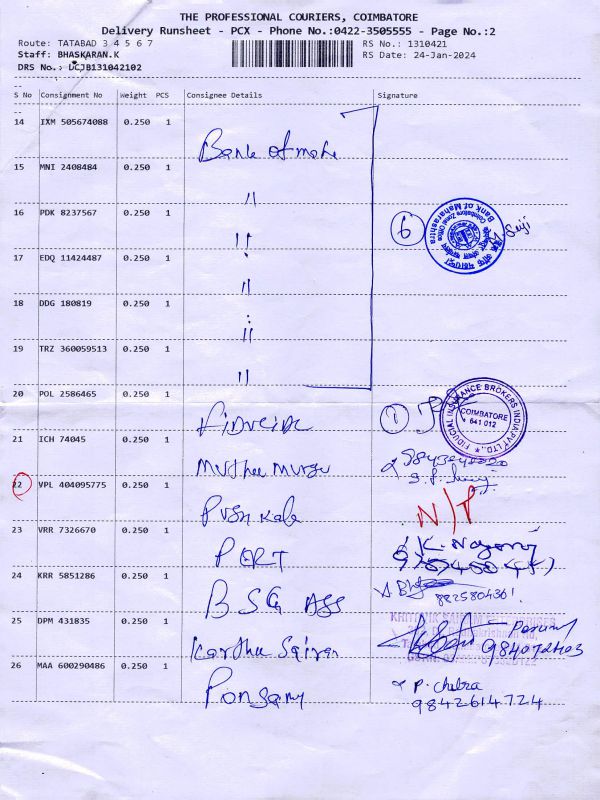 THE PROFESSIONAL COURIERS, COIMBATORE
Delivery Runsheet - PCX - Phone No.:0422-3505555 - Page No.:2
Route: TATABAD 3 4 5 6 7
RS No.: 1310421
Staff: BHASKARAN.K
RS Date: 24-Jan-2024
DRS No.: UCJB131042102
S No Consignment No Weight PCS Consignee Details Signature
14 IXM 505674088 0.250 1 Bank of maha
15 MNI 2408484 0.250 1 "
16 PDK 8237567 0.250 1 "
6
Bank of Maharashtra
Coimbatore Zonal Office
17 EDQ 11424487 0.250 1 "
18 DDG 180819 0.250 1 "
19 TRZ 360059513 0.250 1 "
20 POL 2586465 0.250 1
1
FIDUCIAL INSURANCE BROKERS INDIA PVT LTD.
COIMBATORE
641 012
21 ICH 74045 0.250 1
22 VPL 404095775 0.250 1
N/P
23 VRR 7326670 0.250 1 PERT
24 KRR 5851286 0.250 1 BSG Ass
8825804301
25 DPM 431835 0.250 1
26 MAA 600290486 0.250 1 Ponsamy
P. Chitra
9842614724